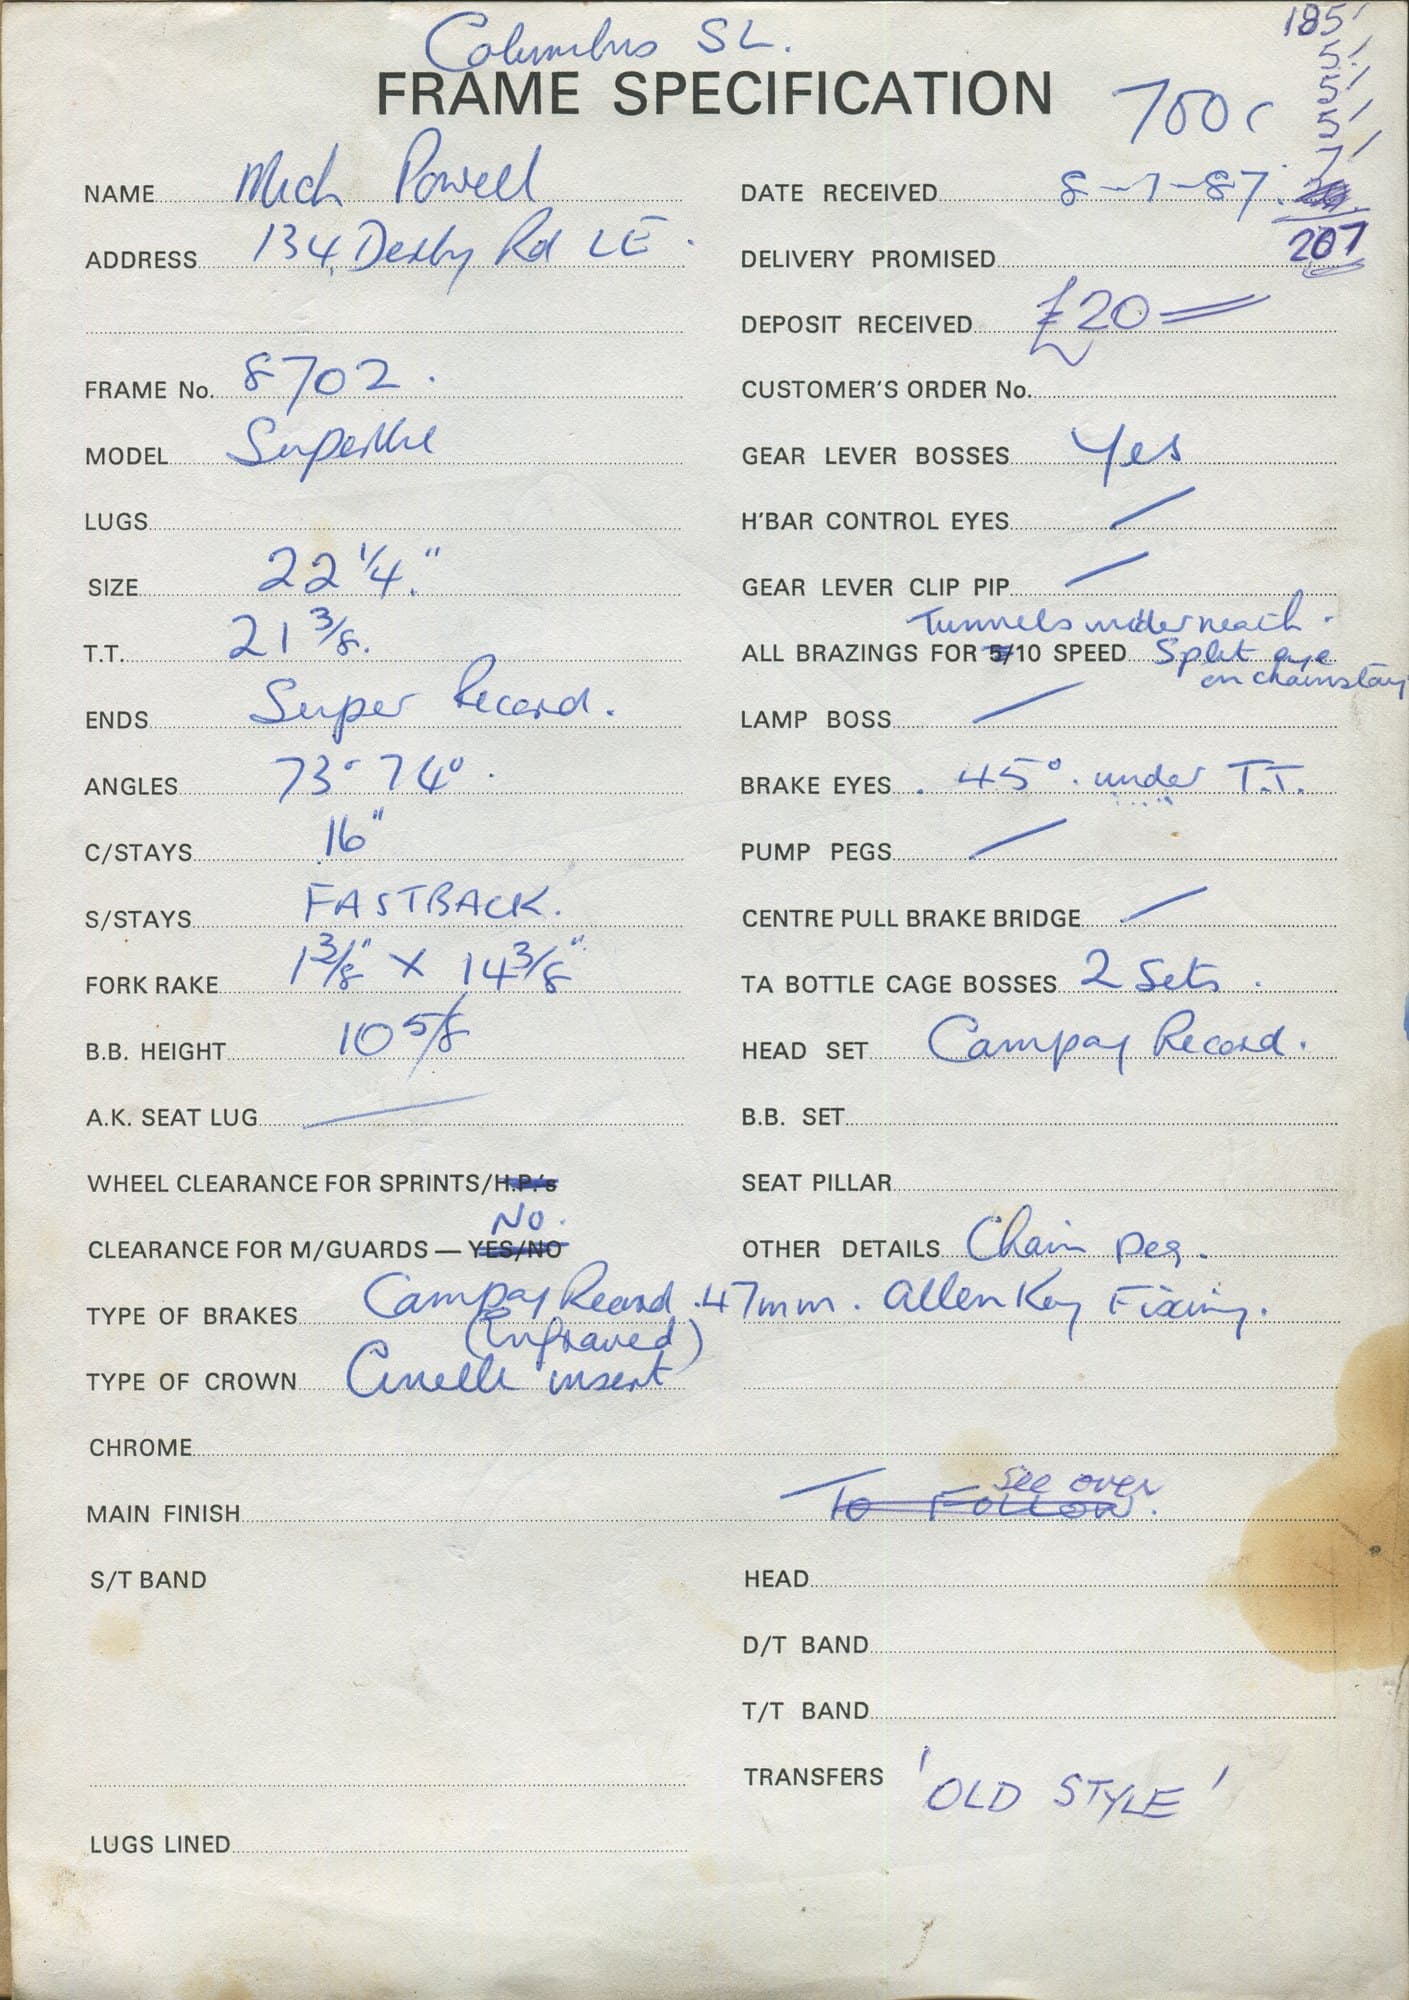 Columbus SL.
FRAME SPECIFICATION
700c
185
5
5
5
7
207
NAME Mick Powell
ADDRESS 134, Derby Rd LE.
FRAME No. 8702.
MODEL Superlite
LUGS
SIZE 22 1/4"
T.T. 21 3/8.
ENDS Super Record.
ANGLES 73° 74°.
C/STAYS 16"
S/STAYS FASTBACK.
FORK RAKE 1 3/8" X 14 3/8"
B.B. HEIGHT 10 5/8
A.K. SEAT LUG —
WHEEL CLEARANCE FOR SPRINTS/H.P.'s
No.
CLEARANCE FOR M/GUARDS — YES/NO
TYPE OF BRAKES Campag Record .47mm. Allen Key Fixing.
(Engraved)
TYPE OF CROWN Cinelli insert
CHROME
MAIN FINISH To Follow. See over
S/T BAND
LUGS LINED
DATE RECEIVED 8-7-87.
DELIVERY PROMISED
DEPOSIT RECEIVED £20=
CUSTOMER'S ORDER No.
GEAR LEVER BOSSES Yes
H'BAR CONTROL EYES /
GEAR LEVER CLIP PIP /
Tunnels underneath.
ALL BRAZINGS FOR 5/10 SPEED Split eye
on chainstay
LAMP BOSS /
BRAKE EYES . 45°. under T.T.
PUMP PEGS /
CENTRE PULL BRAKE BRIDGE /
TA BOTTLE CAGE BOSSES 2 Sets.
HEAD SET Campag Record.
B.B. SET
SEAT PILLAR
OTHER DETAILS Chain peg.
HEAD
D/T BAND
T/T BAND
TRANSFERS 'OLD STYLE'